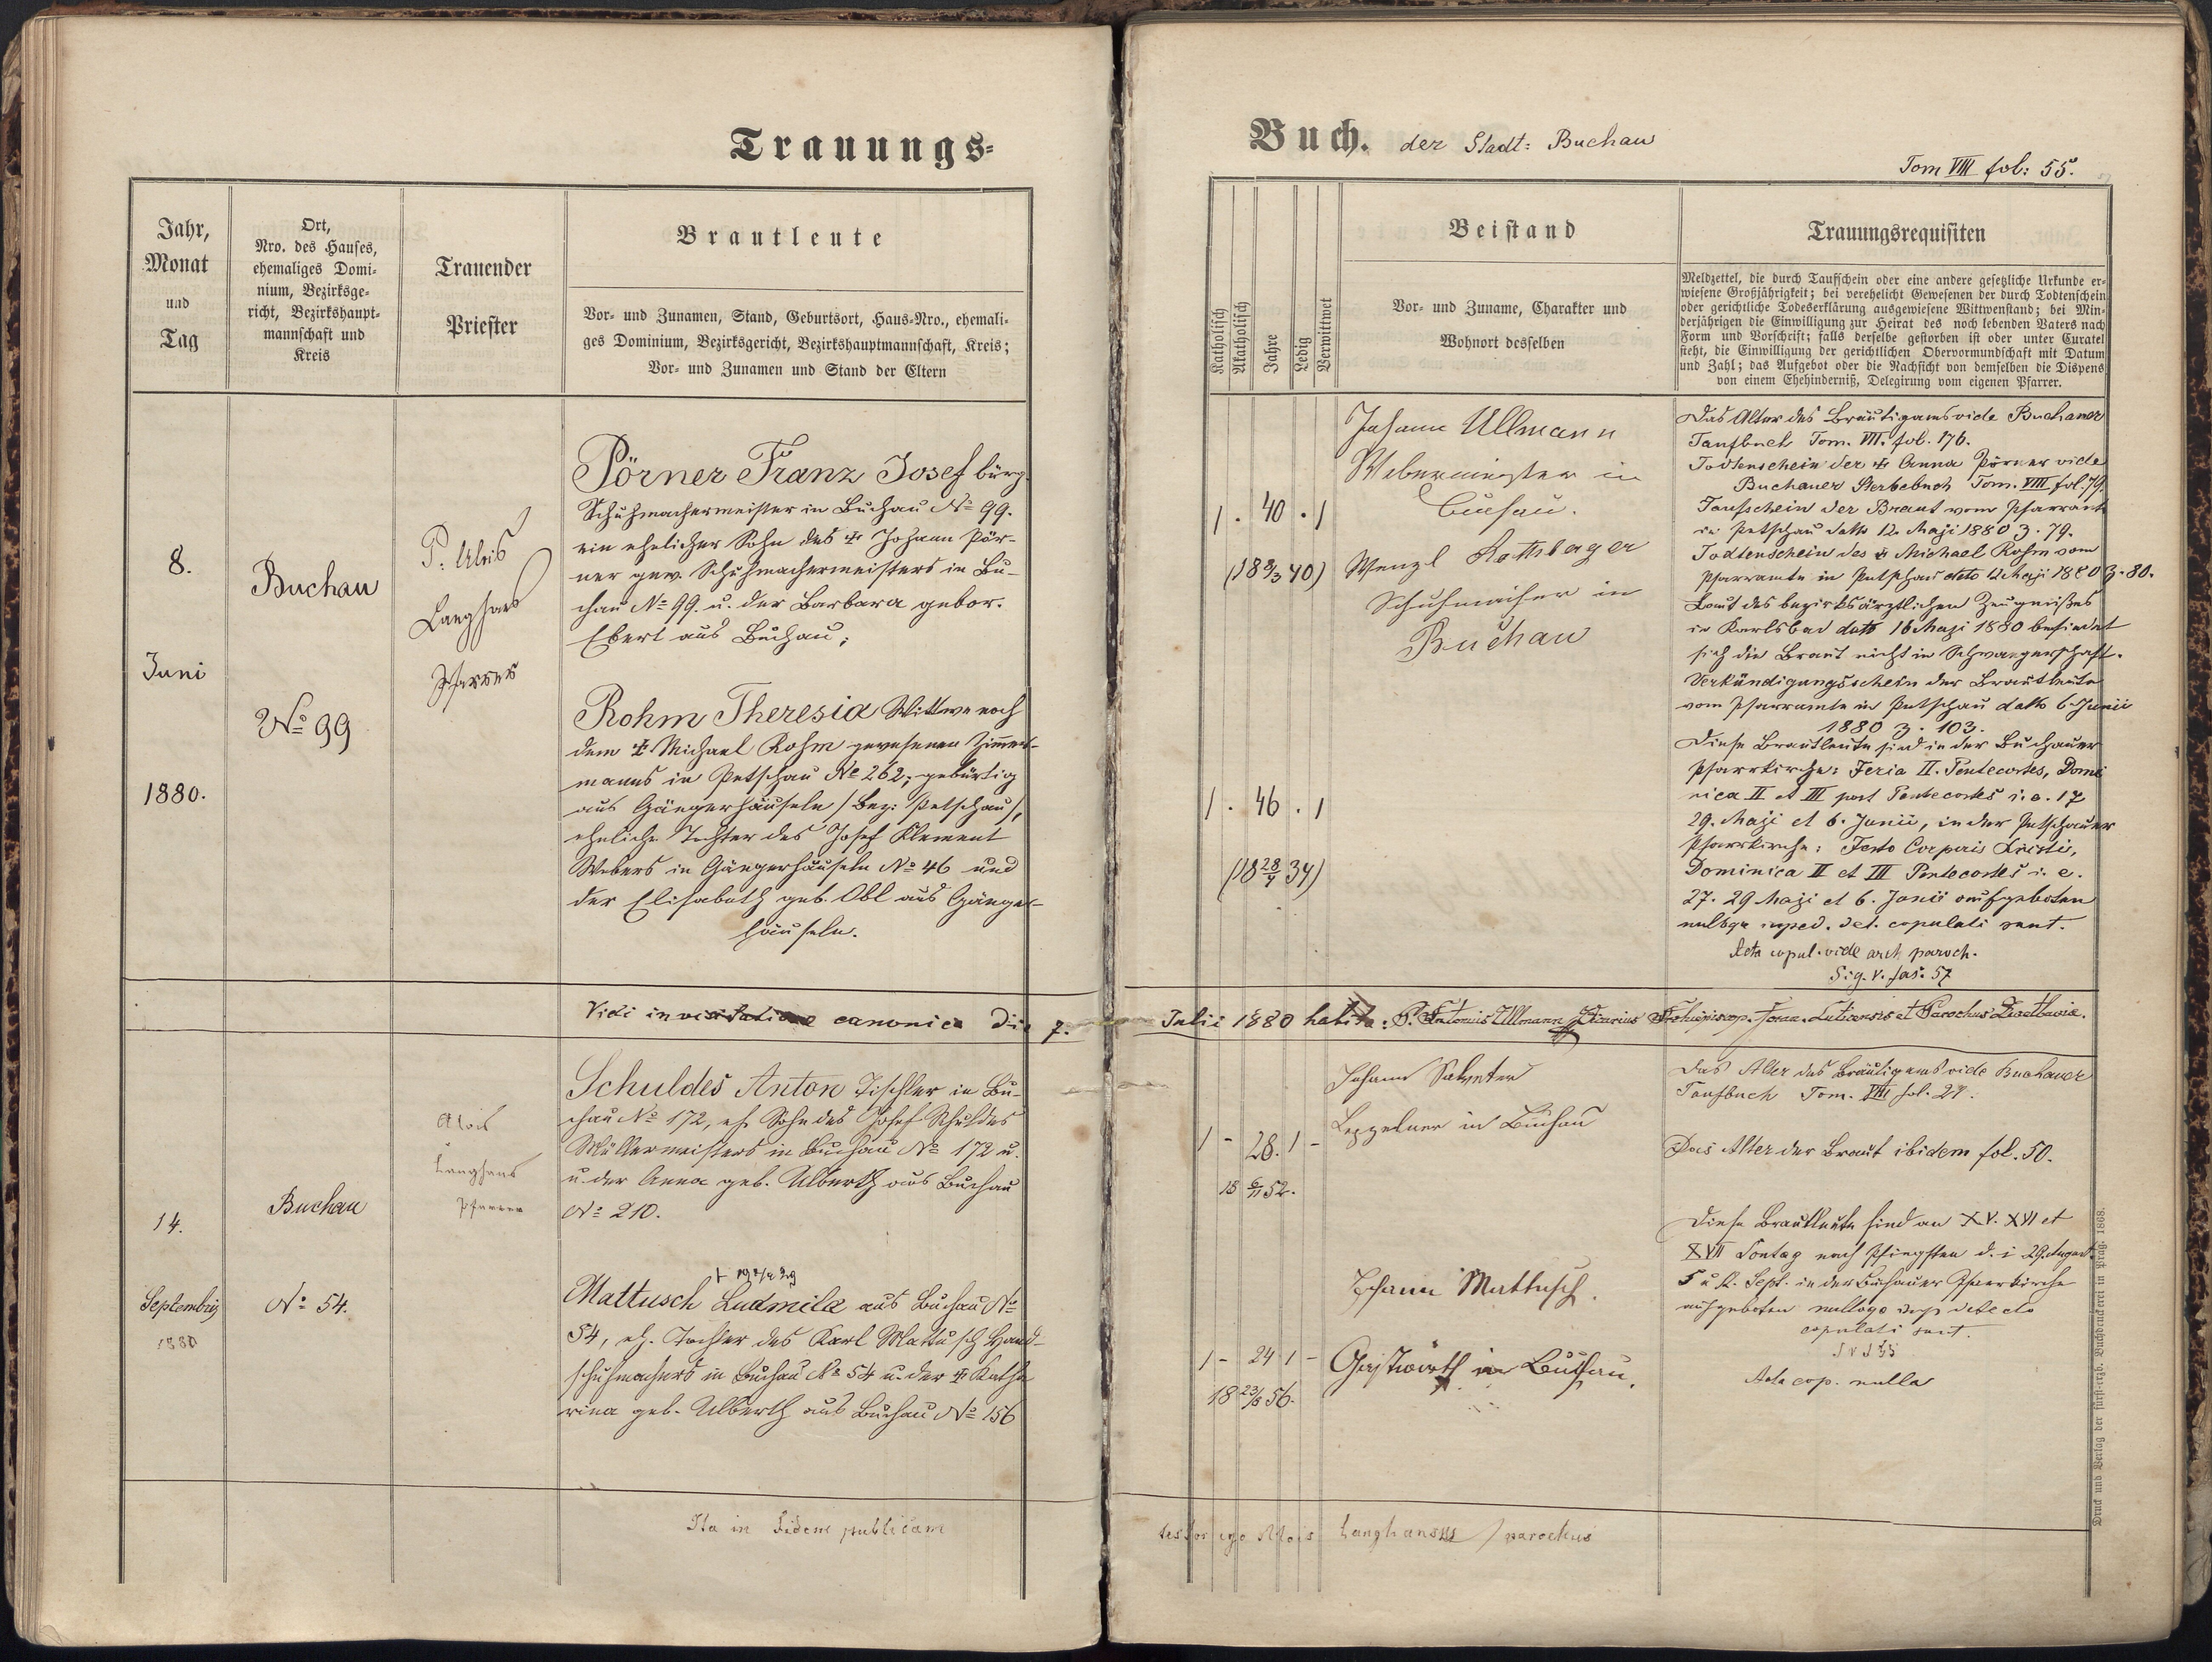 Trauungs-
Jahr,
Monat
und
Tag
Ort,
Nro. des Hauses,
ehemaliges Domi-
nium, Bezirksge-
richt, Bezirkshaupt-
mannschaft und
Kreis
Trauender
Priester
Brautleute
Vor- und Zunamen, Stand, Geburtsort, Haus-Nro., ehemali-
ges Dominium, Bezirksgericht, Bezirkshauptmannschaft, Kreis;
Vor- und Zunamen und Stand der Eltern
8.
Juni
1880.
Buchau
No 99
P. Alois
Langhans
Pfarrer
Pörner Franz Josef bürg.
Schuhmachermeister in Buchau No 99.
ein ehelicher Sohn des † Johann Pör-
ner gew. Schuhmachermeisters in Bu-
chau No 99. u. der Barbara gebor.
Ebert aus Buchau;
Rohm Theresia Wittwe nach
dem † Michael Rohm gewesenen Zimmer-
manns in Petschau No 262; gebürtig
aus Gängerhäuseln /Bez: Petschau/,
eheliche Tochter des Josef Klement
Webers in Gängerhäuseln No 46 und
der Elisabeth geb. Obl aus Gänger-
häuseln.
Vidi in visitatione canonica Die 7.
14.
Septembris
1880
Buchau
No 54.
Alois
Langhans
Pfarrer
Schuldes Anton Tischler in Bu-
chau No 172, eh. Sohn des Josef Schuldes
Müllermeisters in Buchau No 172 u.
u. der Anna geb. Alberth aus Buchau
No 210.
Mattusch Ludmila aus Buchau No
54, eh. Tochter des Karl Mattusch Hand-
schuhmachers in Buchau No 54 u. der † Katha
rina geb. Alberth aus Buchau No 156
Ita in fidem publicam
Buch. der Stadt: Buchau
Tom VIII fol: 55.
Katholisch
Akatholisch
Jahre
Ledig
Verwittwet
Beistand
Vor- und Zuname, Charakter und
Wohnort desselben
Trauungsrequisiten
Meldzettel, die durch Taufschein oder eine andere gesetzliche Urkunde er-
wiesene Großjährigkeit; bei verehelicht Gewesenen der durch Todtenschein
oder gerichtliche Todeserklärung ausgewiesene Wittwenstand; bei Min-
derjährigen die Einwilligung zur Heirat des noch lebenden Vaters nach
Form und Vorschrift; falls derselbe gestorben ist oder unter Curatel
steht, die Einwilligung der gerichtlichen Obervormundschaft mit Datum
und Zahl; das Aufgebot oder die Nachsicht von demselben die Dispens
von einem Ehehinderniß, Delegirung vom eigenen Pfarrer.
1 . 40 . 1
(18 9/3 40)
1 . 46 . 1
(18 28/4 34)
Johann Ullmann
Webermeister in
Buchau.
Wenzl
Schuhmacher in
Buchau
Das Alter des Bräutigams vide Buchauer
Taufbuch Tom. VII. fol. 176.
Todtenschein der † Anna Pörner vide
Buchauer Sterbebuch Tom. VIII fol. 79.
Taufschein der Braut vom Pfarramte
in Petschau dato 12. Maji 1880 Z. 79.
Todtenschein des † Michael Rohm vom
Pfarramte in Petschau dato 12 Maji 1880 Z. 80.
Laut des bezirksärztlichen Zeugnißes
in Karlsbad dato 16 Maji 1880 befindet
sich die Braut nicht in Schwangerschaft.
Verkündigungsschein der Brautleute
vom Pfarramte in Petschau dato 6 Junii
1880 Z. 103.
Diese Brautleute sind in der Buchauer
Pfarrkirche: Feria II. Pentecostes, Domi
nica II et III post Pentecostes i. e. 17
29. Maji et 6. Junii, in der Petschauer
Pfarrkirche: Festo Corporis Christi,
Dominica II et III Pentecostes i. e.
27. 29 Maji et 6. Junii aufgeboten
nulloqe imped. det. copulati sunt.
Acta copul. vide arch paroch.
Sig. V. fas. 57
Julii 1880 habita: P. Antonius Ullmann Vicarius Archiepiscop. foran. Luticensis et Parochus
1 - 28. 1 -
18 6/11 52.
1 - 24 1 -
18 23/8 56.
Johann
in Buchau
Johann Mattusch.
Gastwirth in Buchau.
Das Alter des Bräutigams vide Buchauer
Taufbuch Tom. VIII fol. 27.
Das Alter der Braut ibidem fol. 50.
Diese Brautleute sind an XV. XVI et
XVII Sontag nach Pfingsten d. i 29. August
5 u 12. Sept. in der Buchauer Pfarrkirche
aufgeboten nulloqe imp detecto
copulati sunt.
Acta cop. nulla
testor ego Alois Langhans / parochus
Druck und Verlag der fürst-erzb. Buchdruckerei in Prag. 1868.